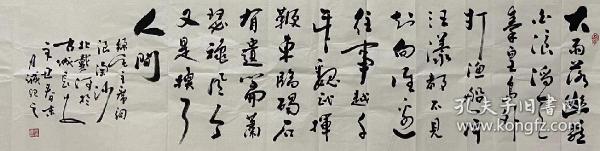 大雨落幽燕
白浪滔天
秦皇岛外
打渔船一片
汪漾都不见
知向谁边
往事越千
年魏武挥
鞭东临碣石
有遗篇萧
瑟秋风今
又是换了
人间
毛主席词
浪淘沙
北戴河於
古城长安
辛丑春
孔夫子旧书网